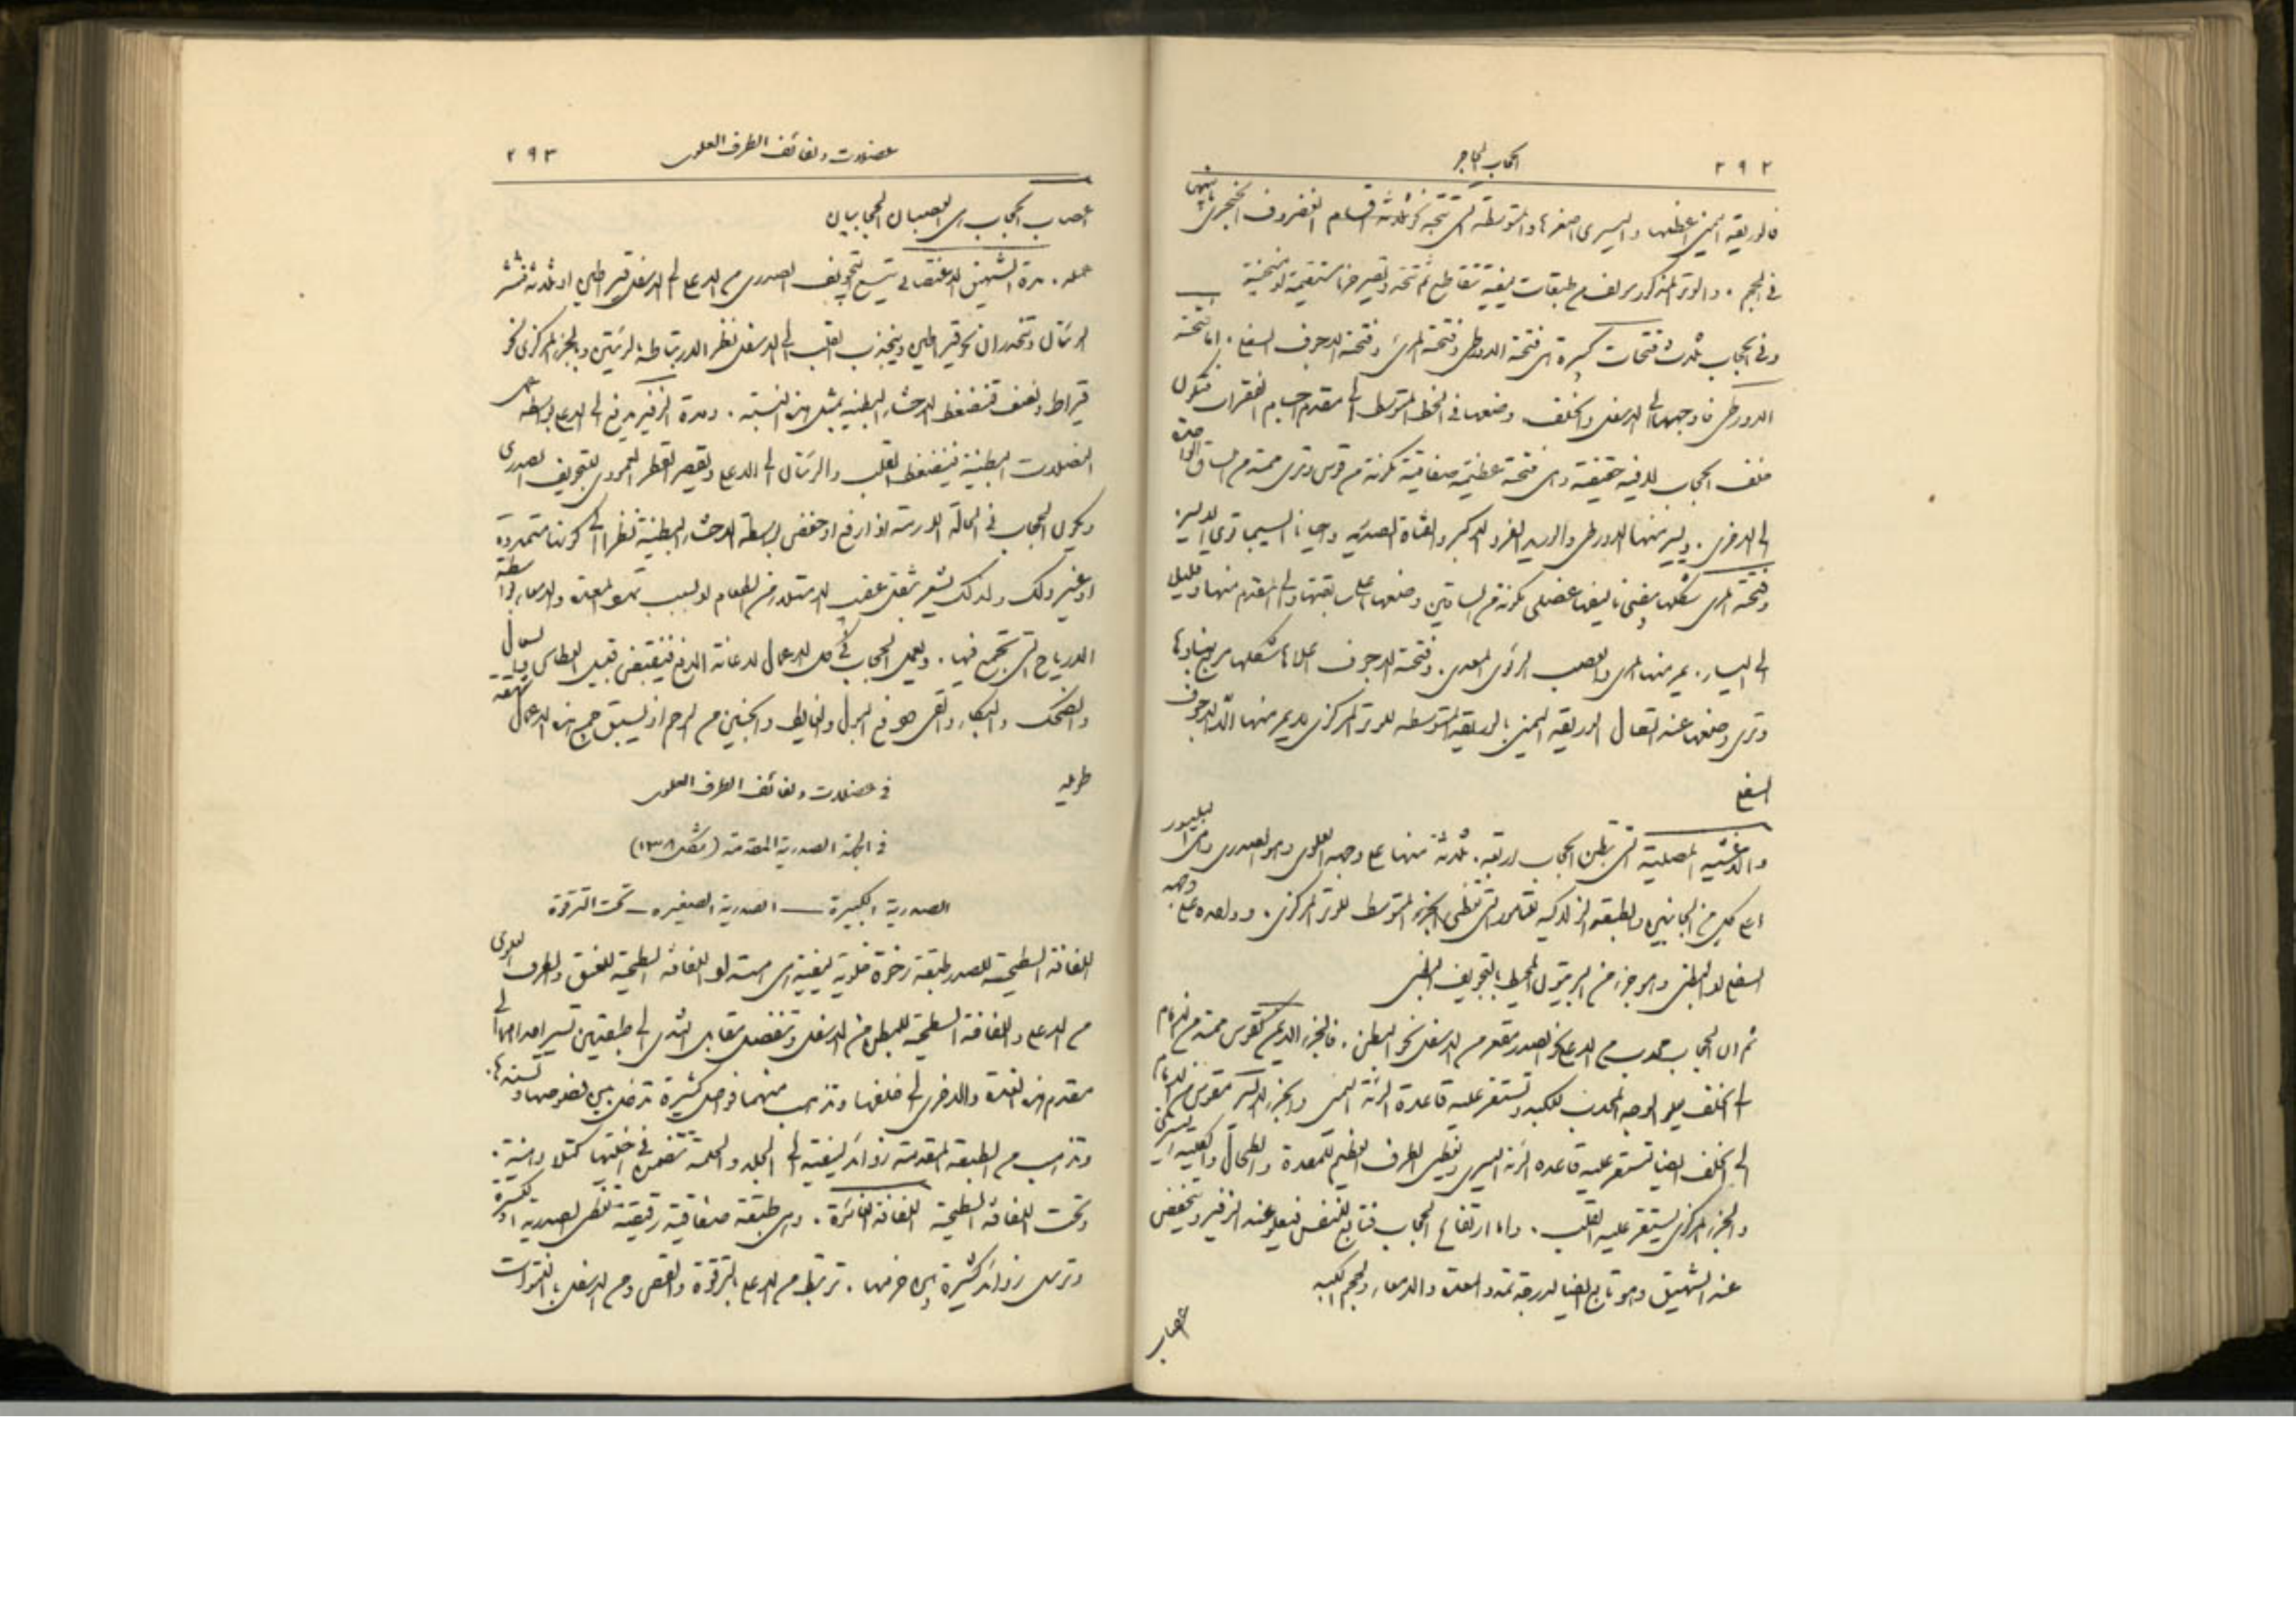 ٢٩٢ الحجاب الحاجز
فالوريقة اليمنى اعظمها واليسرى اصغرها والمتوسطة التي تتجه نحو ثلاثة اقسام الغضروف الخنجري بينهن
في الحجم . والوتر المذكور مولف من طبقات ليفية تتقاطع ثم تتحد وتصير حزما مستقيمة او منحنية
وفي الحجاب ثلاث فتحات كبيرة اي فتحة الاورطى وفتحة المرئ وفتحة الاجوف السفلي . اما فتحة
الاورطى فاوجهها الى الاسفل والخلف وضعها في الخط المتوسط الى مقدم اجسام الفقرات فتكون
خلف الحجاب لا فيه حقيقة وهي فتحة عظيمة صفاقية مكونة من قوس وتري ممتد من الساق الواحدة
الى الاخرى . ويسير منها الاورطى والوريد الفرد الاكبر والقناة الصدرية واحيانا السيمباتوي الايسر
وفتحة المرئ شكلها بيضي تاليفها عضلي مكونة من الساقين وضعها اعلى سابقتها والى المقدم منها وقليلا
الى اليسار . يمر منها المرئ والعصب الرئوي المعدي . وفتحة الاجوف اعلاها شكلها مربع وبناؤها
وتري وضعها عند اتصال الوريقة اليمنى بالوريقة المتوسطة للوتر المركزي لا يمر منها الا الاجوف
السفلي
والاغشية المصلية التي تبطن الحجاب اربعة . ثلاثة منها على وجهه العلوي وهو الصدري وهي البليورا
على كل من الجانبين والطبقة الزلالية للتامور التي تغطي الجزء المتوسط للوتر المركزي . وواحدة على وجهه
السفلي او البطني وهو جزء من البريتون المحيط بالتجويف البطني
ثم ان الحجاب محدب من الاعلى نحو الصدر مقعر من الاسفل نحو البطن . فالجزء الايمن كقوس ممتد من الامام
الى الخلف يعلو الوجه المحدب للكبد وتستقر عليه قاعدة الرئة اليمنى والجزء الايسر مقوس من الامام
الى الخلف ايضا تستقر عليه قاعدة الرئة اليسرى ويغطي الطرف العظيم للمعدة والطحال والكلية اليسرى
والجزء المركزي يستقر عليه القلب . واما ارتفاع الحجاب فتابع للتنفس فيعلو عند الزفير وينخفض
عند الشهيق وهو تابع ايضا لدرجة تمدد المعدة والامعاء ولحجم الكبد
اعصاب
عضلات ولفائف الطرف العلوي ٢٩٣
اعصاب الحجاب هي العصبان الحجابيان
عمله . مدة الشهيق الاعتيادي يتسع التجويف الصدري من الاعلى الى الاسفل قيراطين او ثلاثة فتنتشر
الرئتان وتنحدران نحو قيراطين وينجذب القلب الى الاسفل نظرا لارتباطه بالرئتين وبالجزء المركزي نحو
قيراط ونصف فتنضغط الاحشاء البطنية بمثل هذه النسبة . ومدة الزفير يرتفع الى الاعلى بواسطة عمل
العضلات البطنية فينضغط القلب والرئتان الى الاعلى ويقصر القطر العمودي للتجويف الصدري
ويكون الحجاب في الحالة اذ ارتفع او خفض بواسطة الاحشاء البطنية نظرا الى كونها متمددة
او غير ذلك ولذلك يشعر بثقل عقيب الامتلاء من الطعام او بسبب تمدد المعدة والامعاء بواسطة
الارياح التي تجتمع فيها . ويعمل الحجاب في كل الاعمال لاعانة الدفع فينقبض قبل العطاس والسعال
والضحك والبكاء والقئ ودفع البول والغايط والجنين من الرحم اذ يسبق جميع هذه الاعمال شهقة
طويلة
في عضلات ولفائف الطرف العلوي
في الجهة الصدرية المقدمة (شكل ١٣٨)
الصدرية الكبيرة — الصدرية الصغيرة — تحت الترقوة
اللفافة السطحية للصدر طبقة رخوة خلوية ليفية هي امتداد اللفافة السطحية للعنق والطرف العلوي
من الاعلى واللفافة السطحية للبطن من الاسفل وتنفصل مقابل الثدي الى طبقتين تسير احداهما الى
مقدم هذه الغدة والاخرى الى خلفها وتذهب منهما فواصل كثيرة تدخل بين فصوصها وتسندها .
وتذهب من الطبقة المقدمة زوائد ليفية الى الجلد والحلمة تتضمن في اخليتها كتلا دهنية .
وتحت اللفافة السطحية اللفافة الغائرة . وهي طبقة صفاقية رقيقة تغطي الصدرية الكبيرة
وترسل زوائد كثيرة بين حزمها . ترتبط من الاعلى بالترقوة والقص ومن الاسفل بالفقرات